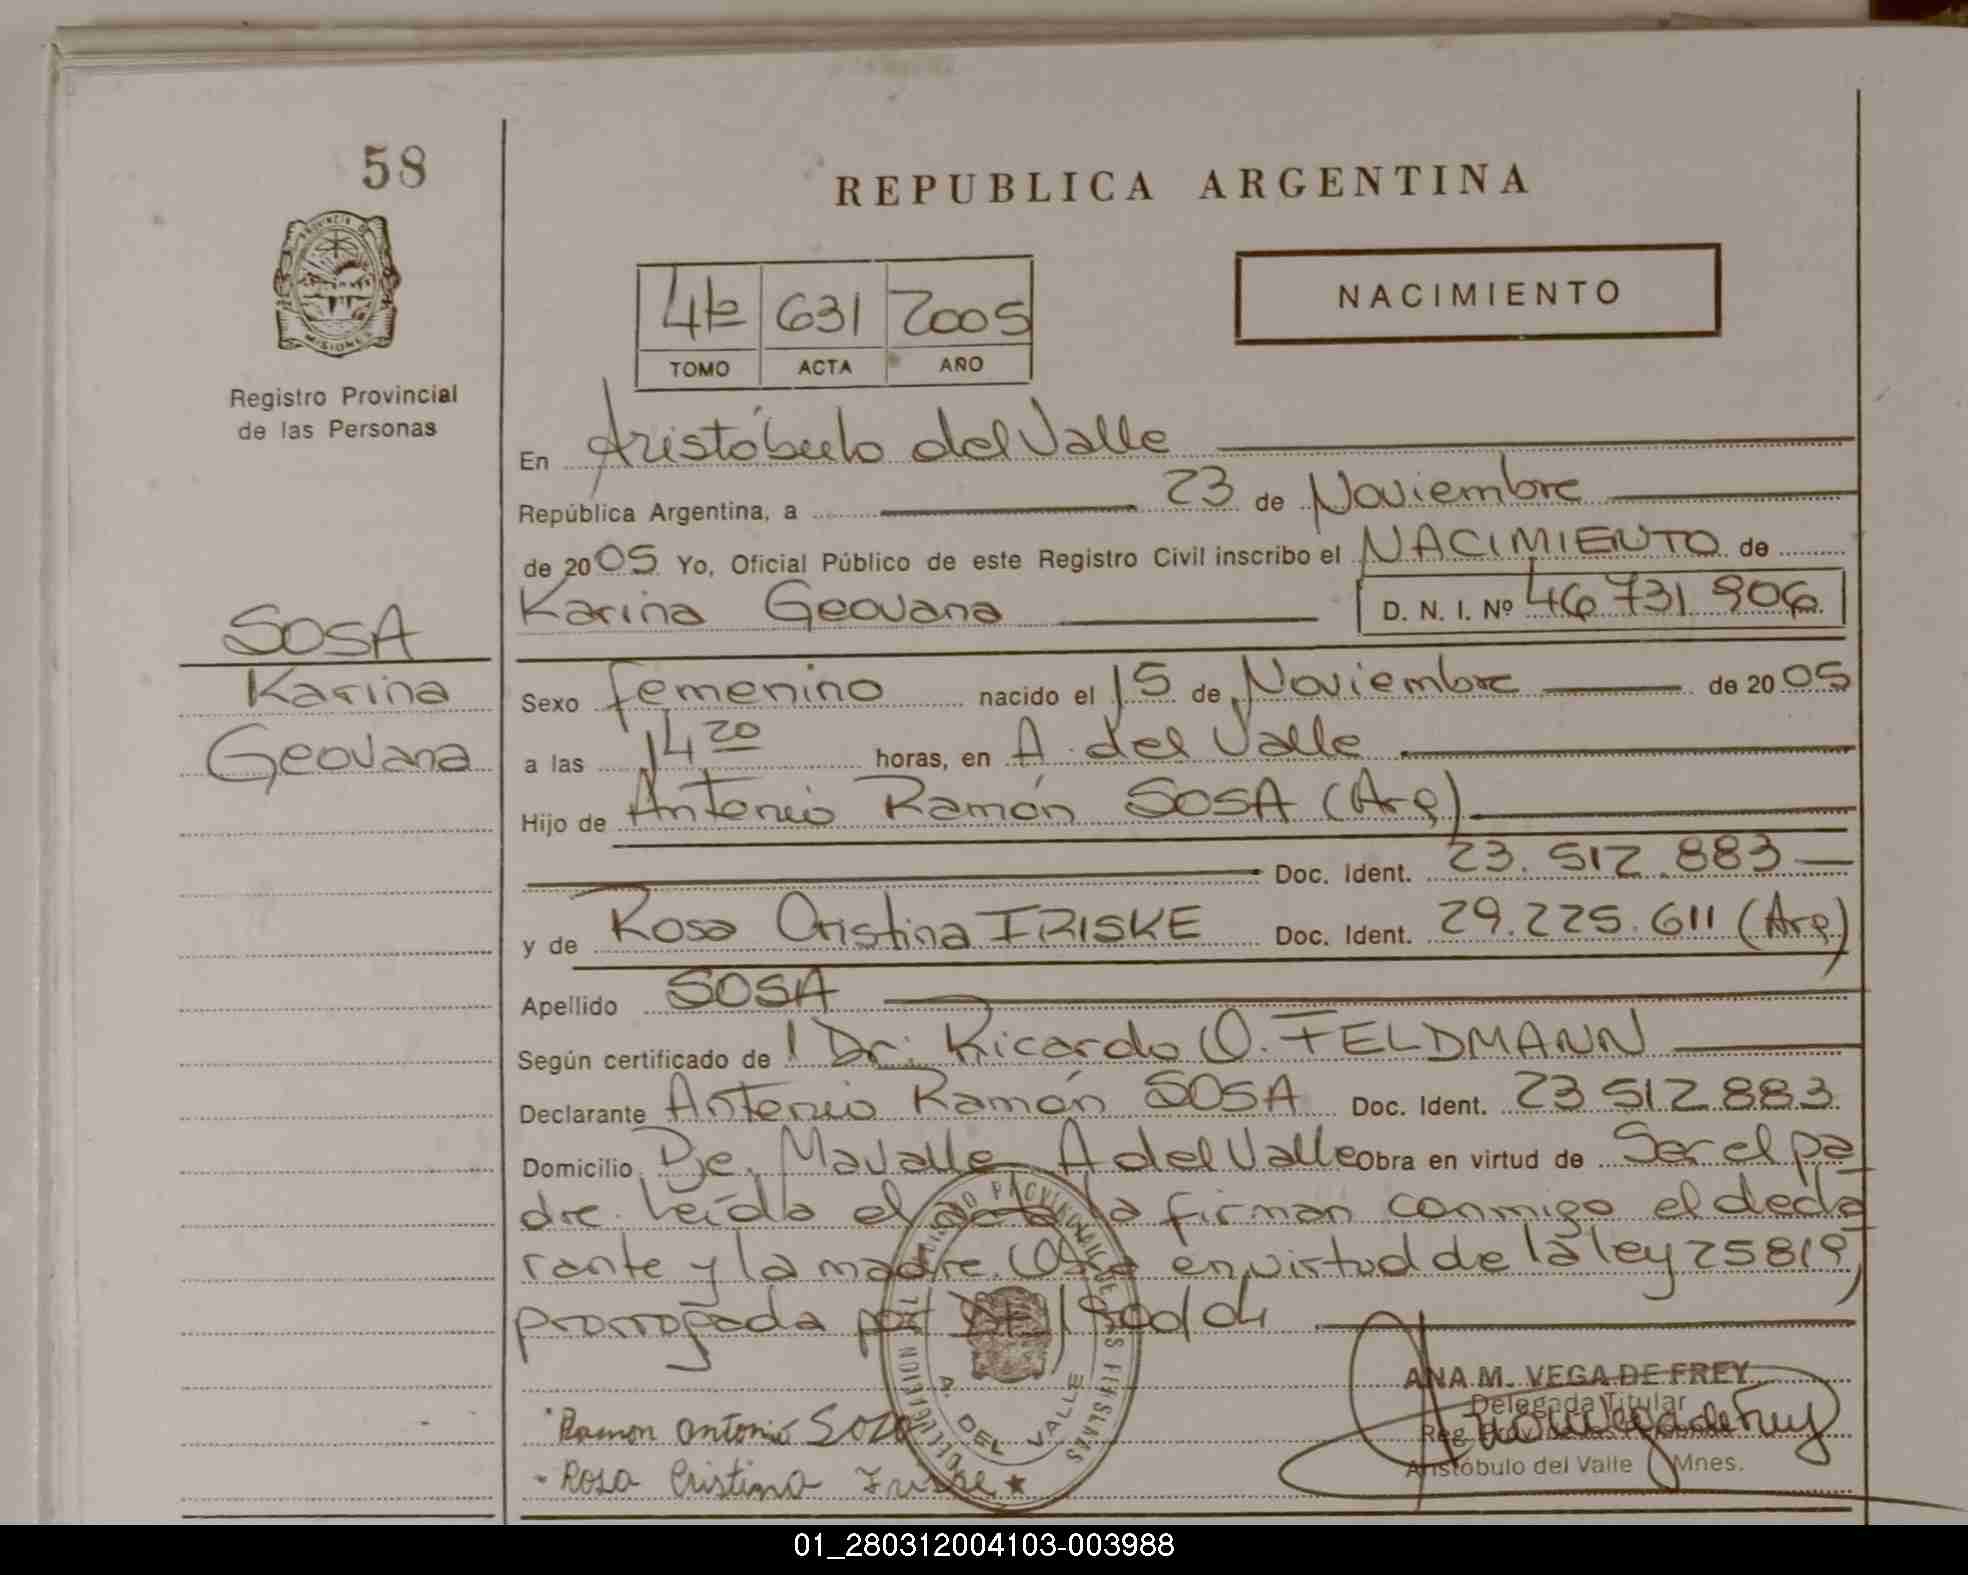 58
REPUBLICA ARGENTINA
PROVINCIA DE
MISIONES
4to 631 2005
TOMO ACTA AÑO
NACIMIENTO
Registro Provincial
de las Personas
En Aristóbulo del Valle
República Argentina, a 23 de Noviembre
de 2005 Yo, Oficial Público de este Registro Civil inscribo el NACIMIENTO de
Karina Geovana D. N. I. Nº 46 731 906
SOSA
Karina
Geovana
Sexo femenino nacido el 15 de Noviembre de 2005
a las 14 20 horas, en A. del Valle
Hijo de Antonio Ramón SOSA (Arg)
Doc. Ident. 23.512.883
y de Rosa Cristina IRISKE Doc. Ident. 29.225.611 (Arg)
Apellido SOSA
Según certificado de Dr. Ricardo O. FELDMANN
Declarante Antonio Ramón SOSA Doc. Ident. 23 512 883
Domicilio Pje. Mavalle A del Valle Obra en virtud de Ser el pa
dre. Leída el acta la firman conmigo el decla
rante y la madre. en virtud de la ley 25819
prorrogada por
A. DEL VALLE
ANA M. VEGA DE FREY
Delegada Titular
Aristóbulo del Valle Mnes.
Ramon antonio Soza
Rosa Cristina Iriske
01_280312004103-003988